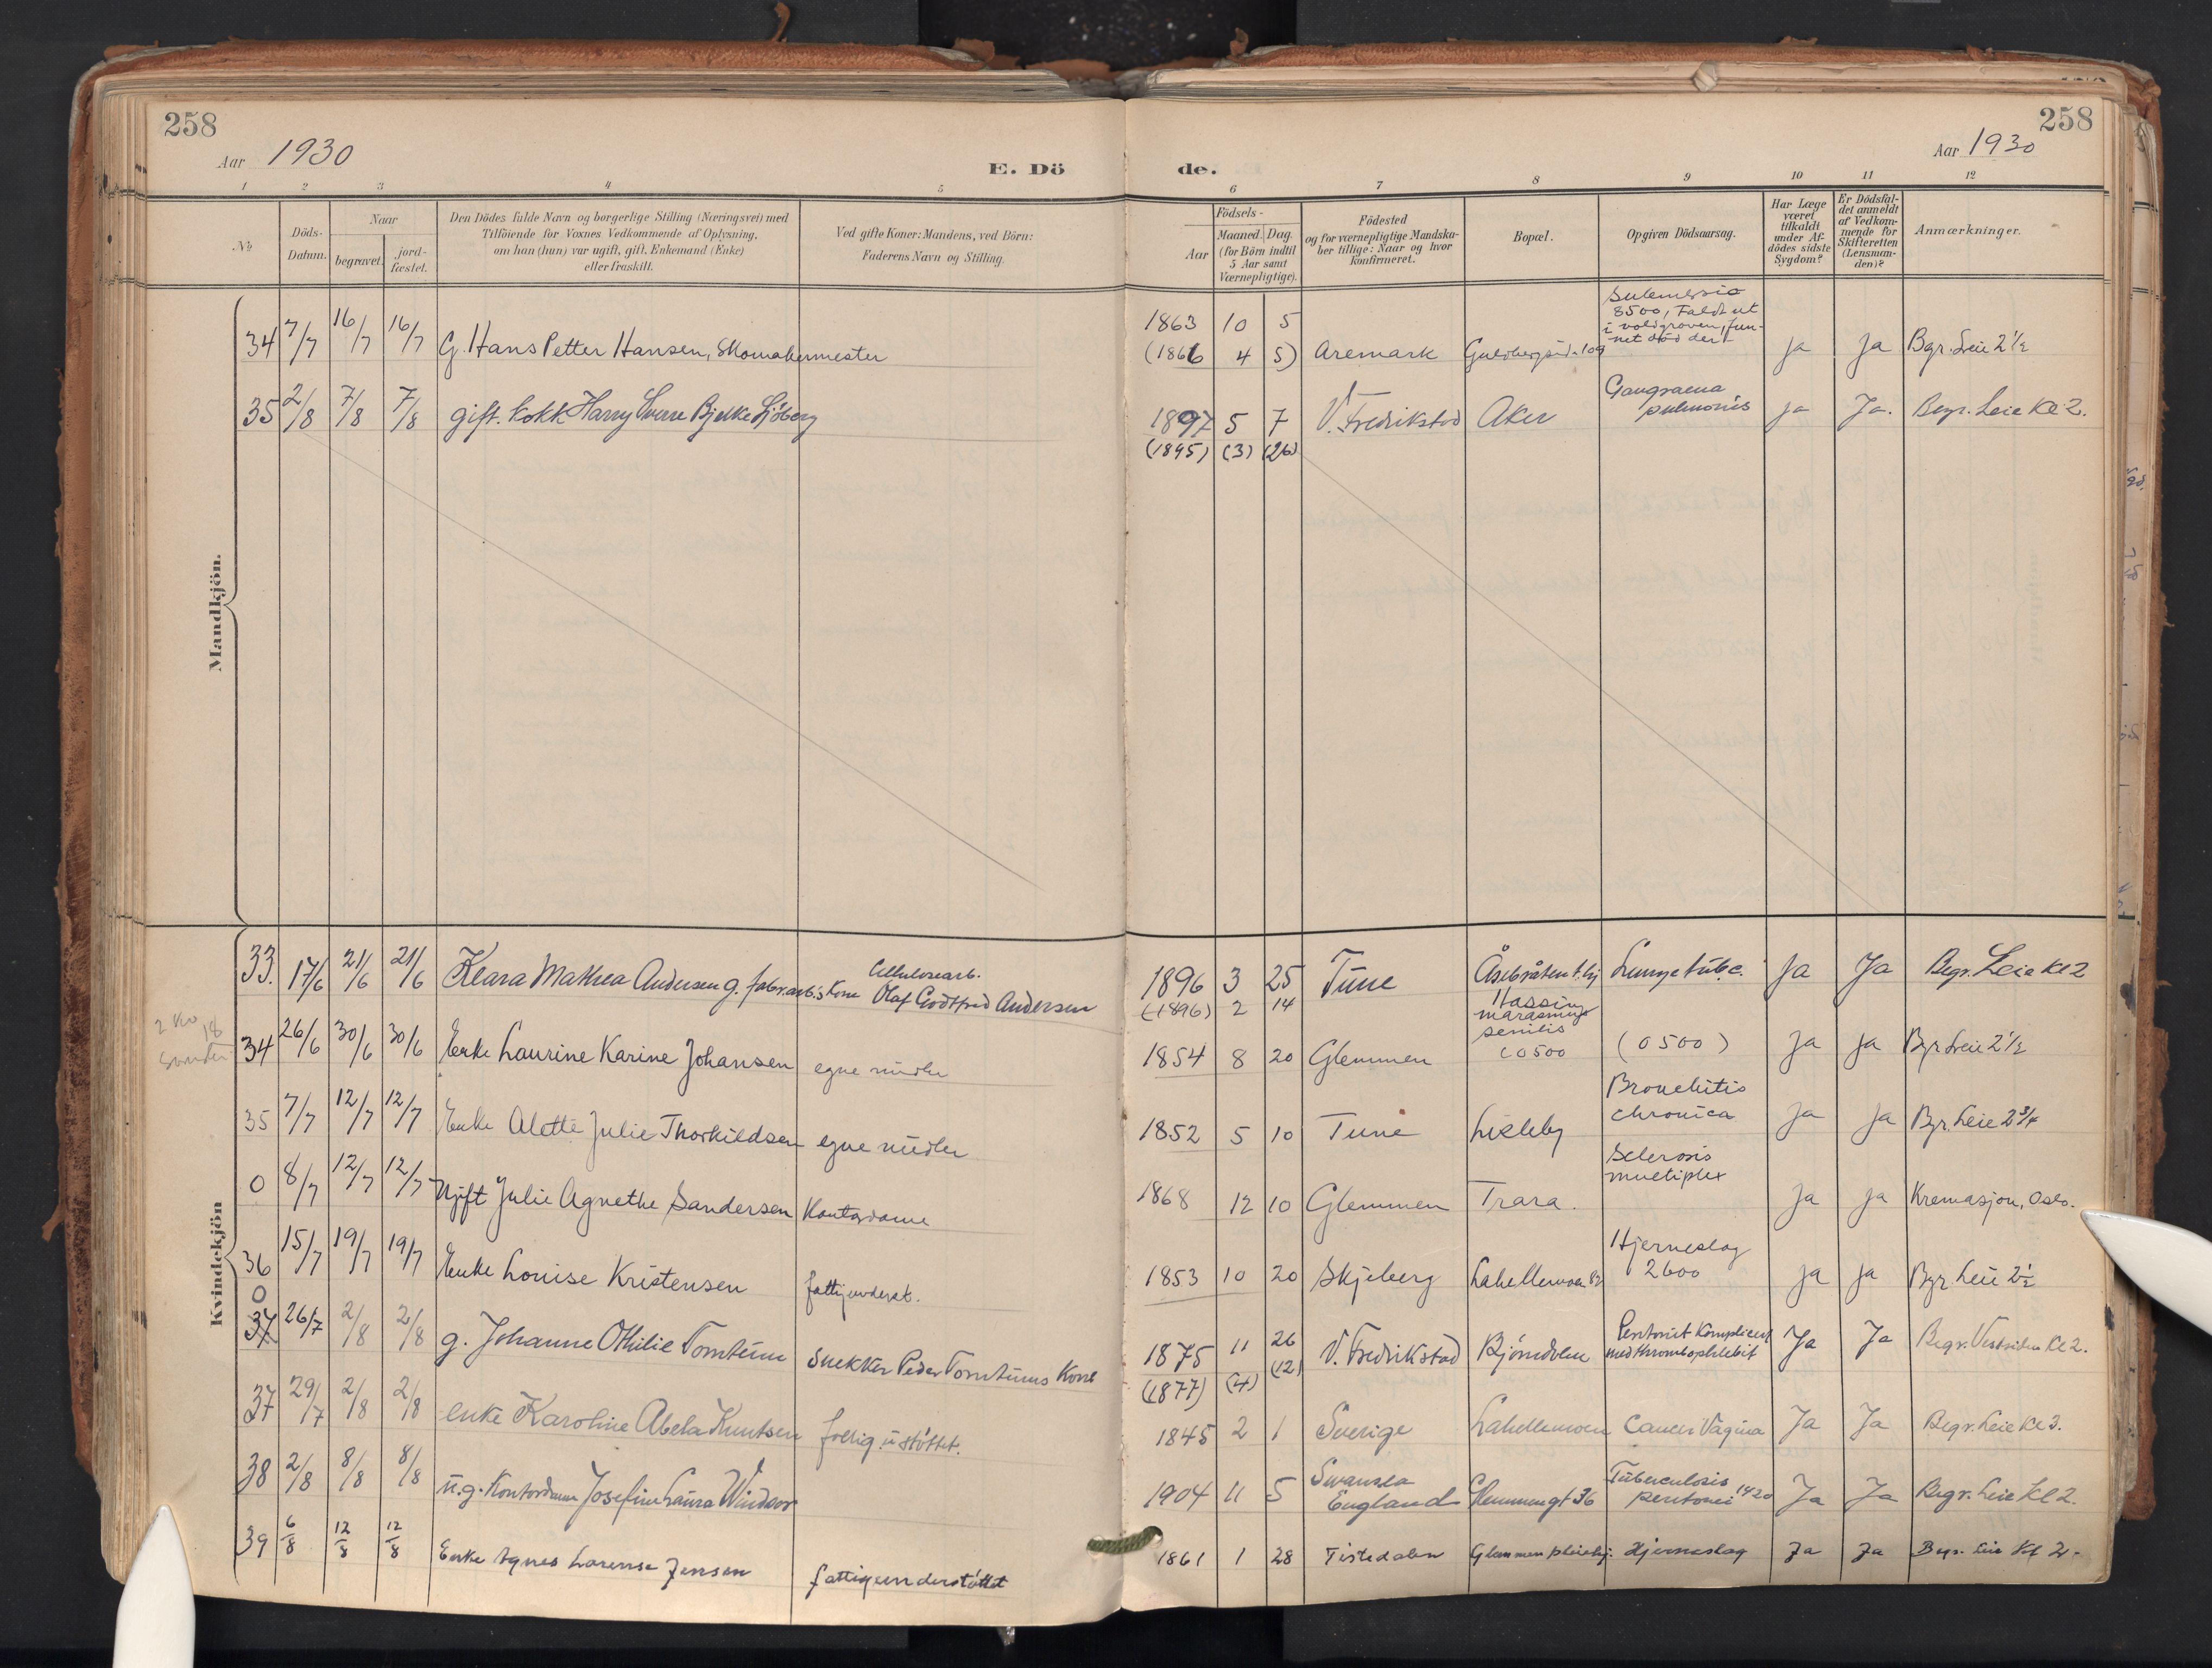 258
Aar 1930
E. Dö
de.
258
Aar 1930
1 2 3 4 5 6 7 8 9 10 11 12
№
Döds-
Datum.
Naar
begravet.
jord-
fæstet.
Den Dödes fulde Navn og borgerlige Stilling (Næringsvei) med
Tilföiende for Voxnes Vedkommende af Oplysning,
om han (hun) var ugift, gift, Enkemand (Enke)
eller fraskilt.
Ved gifte Koner: Mandens, ved Börn:
Faderens Navn og Stilling.
Födsels-
Aar
Maaned. Dag.
(for Börn indtil
5 Aar samt
Værnepligtige).
Födested
og for værnepligtige Mandska-
ber tillige: Naar og hvor
konfirmeret.
Bopæl.
Opgiven Dödsaarsag.
Har Læge
været
tilkaldt
under Af-
dödes sidste
Sygdom?
Er Dödsfal-
det anmeldt
af Vedkom-
mende for
Skifteretten
(Lensman-
den)?
Anmærkninger.
Mandkjön.
34 7/7 16/7 16/7 G. Hans Petter Hansen, Skomakermester 1863 10 5
(1866 4 5) Aremark 109 8500, Faldt ut
i voldgraven, fun-
net död der ja Ja Bgr. Leie 2 1/2
35 2/8 7/8 7/8 gift. kokk Harry Sverre Bjelke Sjöberg 1897 5 7 V. Fredrikstad Aker Gangraena
pulmonis ja Ja. Begr. Leie Kl 2.
(1895) (3) (26)
Kvindekjön
33. 17/6 21/6 21/6 Klara Mathea Andersen g. fabr.arb.s Kone Cellulosearb.
Olaf Godtfred Andersen 1896 3 25 Tune Lungetubc. Ja Ja Begr. Leie Kl 2
(1896) 2 14
34 26/6 30/6 30/6 Enke Laurine Karine Johansen egne midler 1854 8 20 Glemmen marasmus
senilis
(0500 (0500) Ja Ja Bgr Leie 2 1/2
35 7/7 12/7 12/7 Enke Alette Julie Thorkildsen egne midler 1852 5 10 Tune Lisleby Bronchitis
chronica Ja Ja Bgr. Leie 2 3/4
0 8/7 12/7 12/7 Ugift Julie Agnethe Sandersen Kontordame 1868 12 10 Glemmen Trara. Sclerosis
multiplex Ja Ja Kremasjon, Oslo.
36 15/7 19/7 19/7 Enke Louise Kristensen fattigunderst. 1853 10 20 Skjeberg Lahellemoen 82 Hjerneslag
2600 Ja Ja Bgr. Leie 2 1/2
0
37 26/7 2/8 2/8 g. Johanne Othilie Tomteum Snekker Peder Tomteums Kone 1875 11 26 V. Fredrikstad Bjørndalen Peritonit Komplicert
med thrombophlebit Ja Ja Begr. Vestsiden Kl 2.
(1877) (4) (12)
37 29/7 2/8 2/8 enke Karoline Abela Knutsen 1845 2 1 Sverige Lahellemoen Cancer Vagina Ja Ja Begr. Leie Kl 3.
38 2/8 8/8 8/8 u.g. Kontordame Josefine Laura Windsor 1904 11 5 Swansea
England Glemmengt 36 Tuberculosis
peritonei 1420 Ja Ja Begr. Leie Kl 2.
39 6/8 12/8 12/8 Enke Agnes Larense Jensen fattigunderstöttet 1861 1 28 Tistedalen Glemmen pleiehj. Hjerneslag Ja Ja Begr. Leie Kl 2.